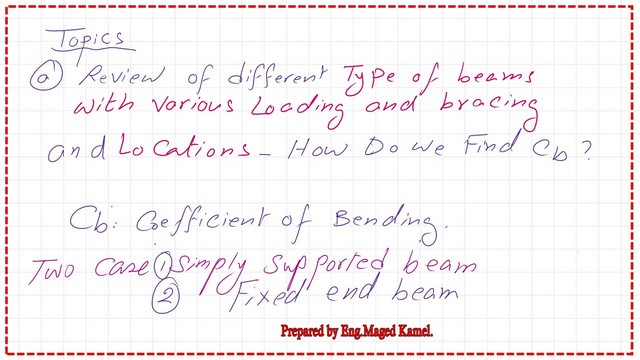 Topics
a Review of different Type of beams
with various Loading and bracing
and Locations - How Do we Find Cb?
Cb: Coefficient of Bending.
Two Case 1 Simply Supported beam
2 Fixed end beam
Prepared by Eng.Maged Kamel.